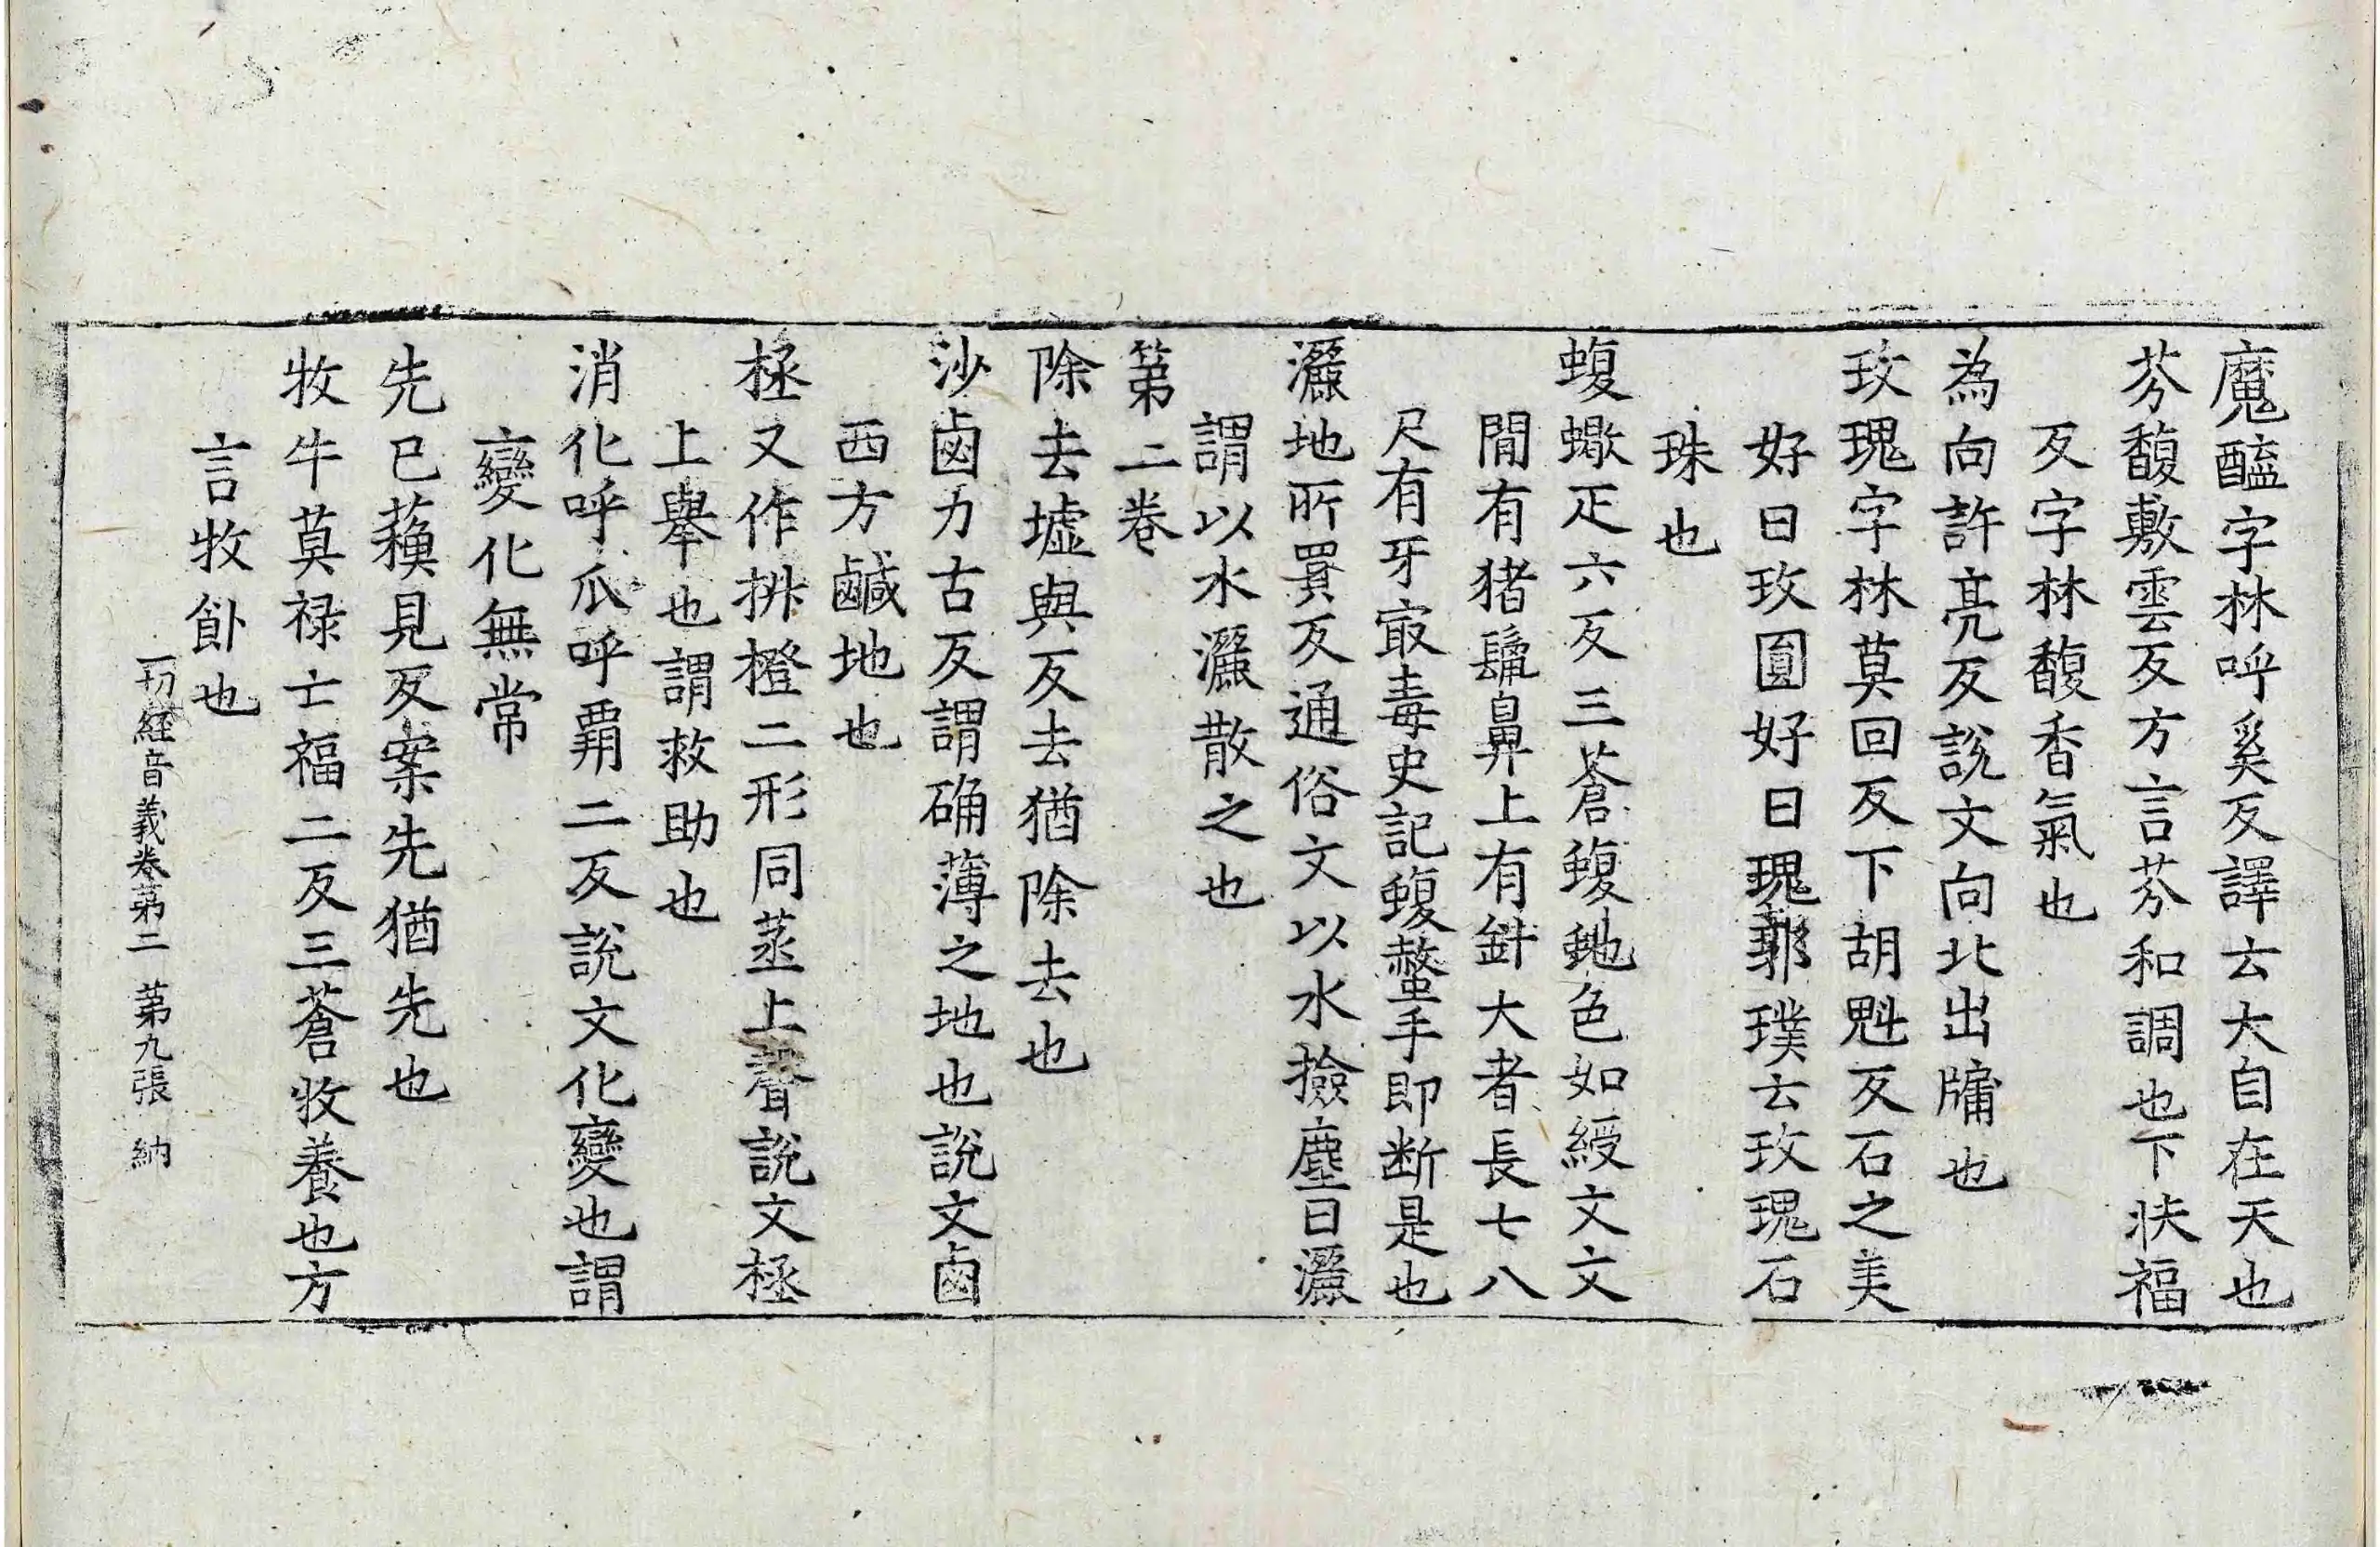 魔醯字林呼奚反譯云大自在天也
芬馥敷雲反方言芬和調也下扶福
反字林馥香氣也
為向許亮反說文向北出牖也
玫瑰字林莫回反下胡魁反石之美
好曰玫圓好曰瑰郭璞云玫瑰石
珠也
蝮蠍疋六反三蒼蝮虵色如綬文文
間有猪鬛鼻上有針大者長七八
尺有牙㝡毒史記蝮螫手即断是也
灑地所買反通俗文以水撿塵曰灑
謂以水灑散之也
第二卷
除去墟與反去猶除去也
沙鹵力古反謂确薄之地也說文鹵
西方鹹地也
拯又作抍橙二形同蒸上聲說文拯
上舉也謂救助也
消化呼瓜呼覇二反說文化變也謂
變化無常
先已蘓見反案先猶先也
牧牛莫禄亡福二反三蒼牧養也方
言牧飤也
一切經音義卷第二 第九張 納